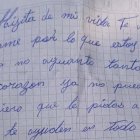 hijita de mi vida Te
ame por lo que estoy
no aguanto tanto
corazon ya no pued
iero que le pidas a
te ayuden en todo